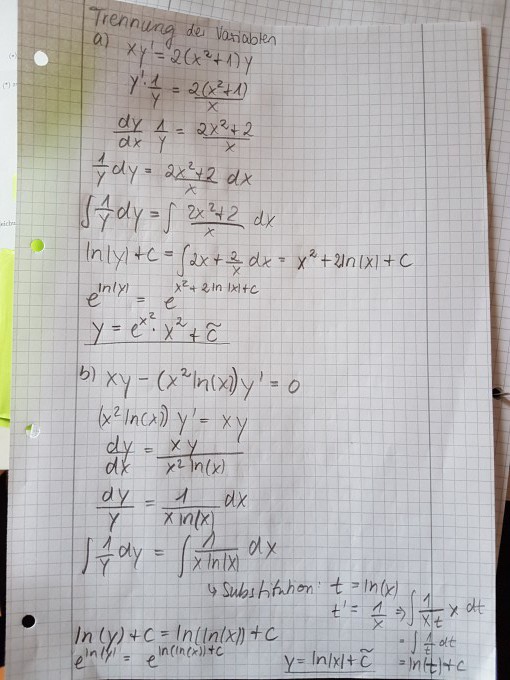 Trennung der Variablen
a) xy' = 2(x²+1)y
y' · 1/y = 2(x²+1)/x
dy/dx 1/y = 2x²+2/x
1/y dy = 2x²+2/x dx
∫ 1/y dy = ∫ 2x²+2/x dx
ln|y| + C = ∫ 2x + 2/x dx = x² + 2ln|x| + C
e^ln|y| = e^x²+2ln|x|+C
y = e^x² · x² + c̃
b) xy - (x² ln(x)) y' = 0
(x² ln(x)) y' = xy
dy/dx = xy/x² ln(x)
dy/y = 1/x ln(x) dx
∫ 1/y dy = ∫ 1/x ln(x) dx
↳ Substitution: t = ln(x)
t' = 1/x ⇒ ∫ 1/xt x dt
= ∫ 1/t dt
= ln(t) + C
ln(y) + C = ln(ln(x)) + C
e^ln|y| = e^ln(ln(x))+C
y = ln|x| + c̃